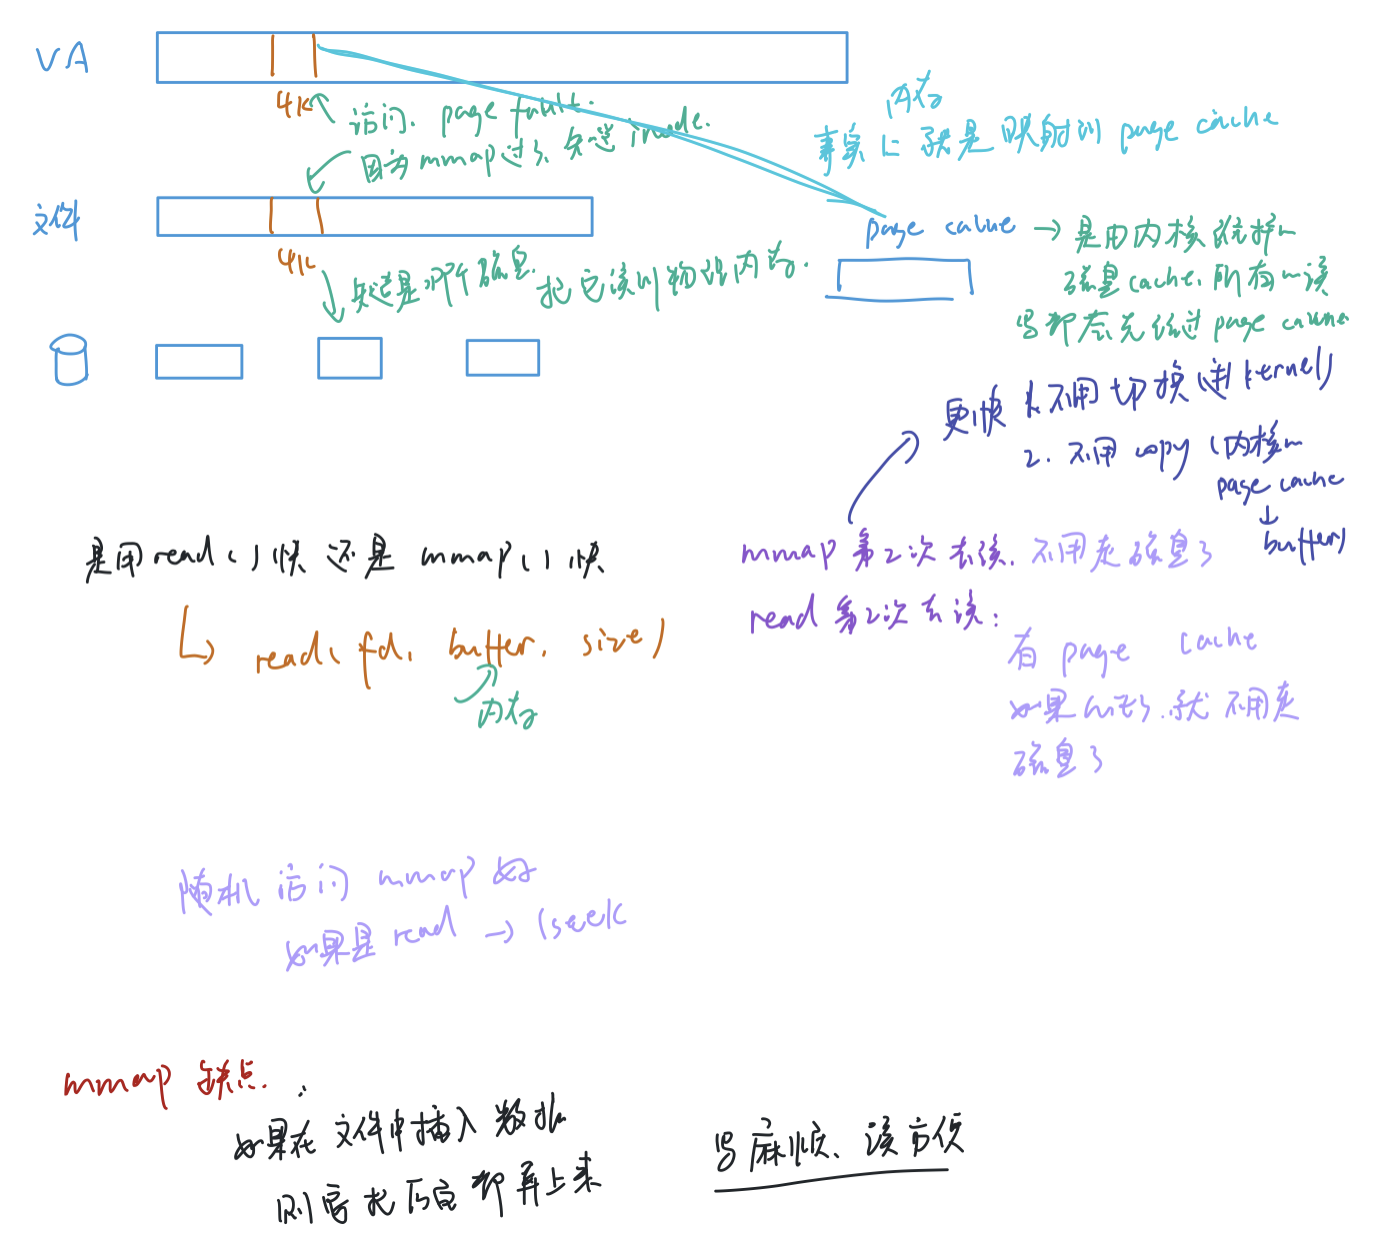 VA
4K
访问. page fault.
因为 mmap 过了、知道 inode.
内存
事实上就是映射到 page cache
文件
4K
知道是哪个磁盘. 把它读到物理内存.
page cache → 是由内核维护的
磁盘 cache. 所有的读
写都会先经过 page cache
更快 1. 不用切换(进kernel)
2. 不用 copy (内核的
page cache
↓
buffer)
是用 read() 快 还是 mmap() 快
read( fd, buffer, size)
内存
mmap 第2次去读. 不用走磁盘了
read 第2次去读:
有 page cache
如果 hit 了.就不用走
磁盘了
随机访问 mmap 好
如果是 read → lseek
mmap 缺点.
如果在文件中插入数据
则需把后面都弄上来
写麻烦、读方便